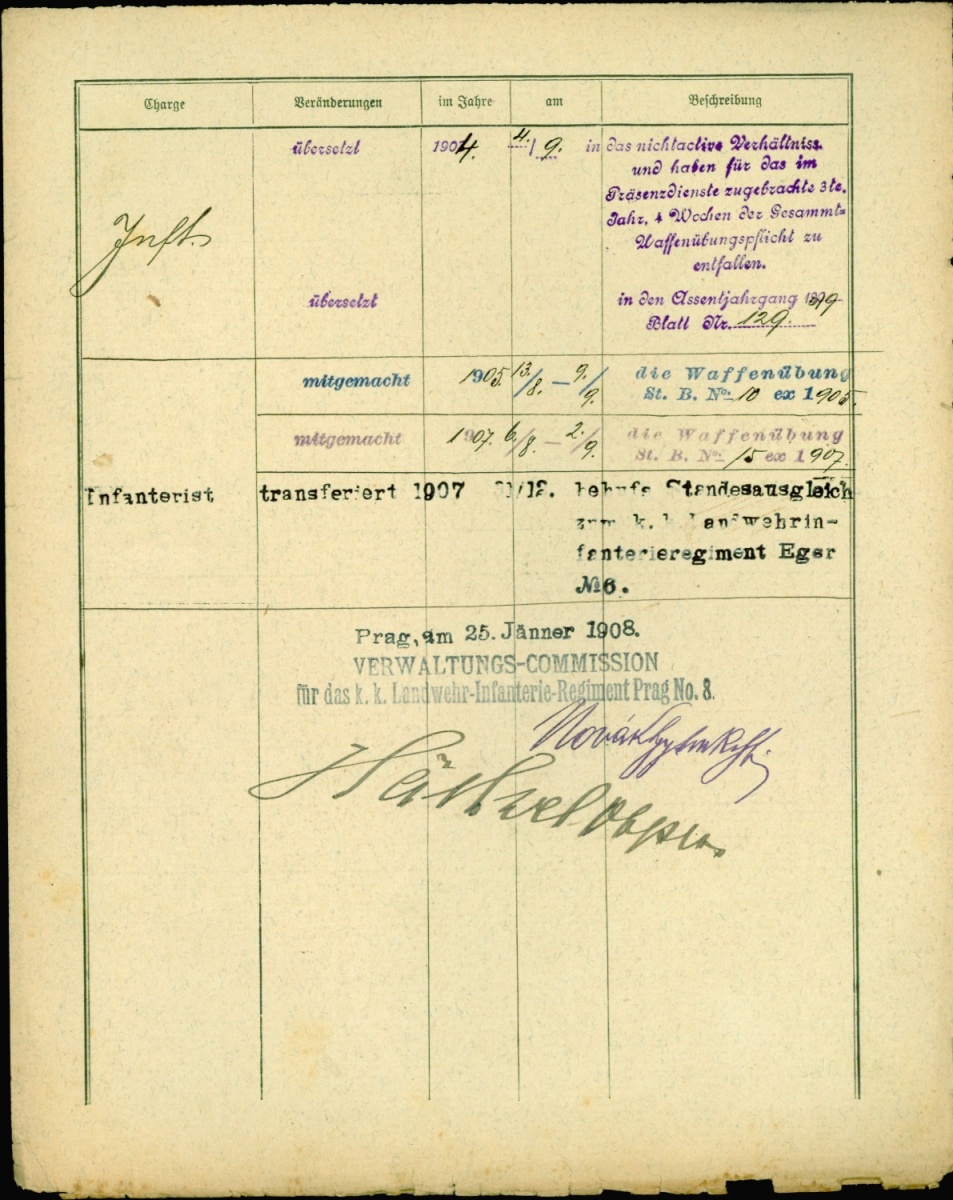 Charge Veränderungen im Jahre am Beschreibung
übersetzt 1904. 4./9. in das nichtactive Verhältniss
und haben für das im
Präsenzdienste zugebrachte 3te.
Jahr, 4 Wochen der Gesammt=
Inft. Waffenübungspflicht zu
entfallen.
übersetzt in den Assentjahrgang 1899
Blatt Nr. 129.
mitgemacht 1905. 13./8. — 9./9. die Waffenübung
St. B. No. 10 ex 1905.
mitgemacht 1907. 6./8. — 2./9. die Waffenübung
St. B. No. 15 ex 1907.
Infanterist transferiert 1907 31/12. behufs Standesausgleich
zum k. k. Landwehrin-
fanterieregiment Eger
№6.
Prag, am 25. Jänner 1908.
VERWALTUNGS-COMMISSION
für das k. k. Landwehr-Infanterie-Regiment Prag No. 8.
Novák